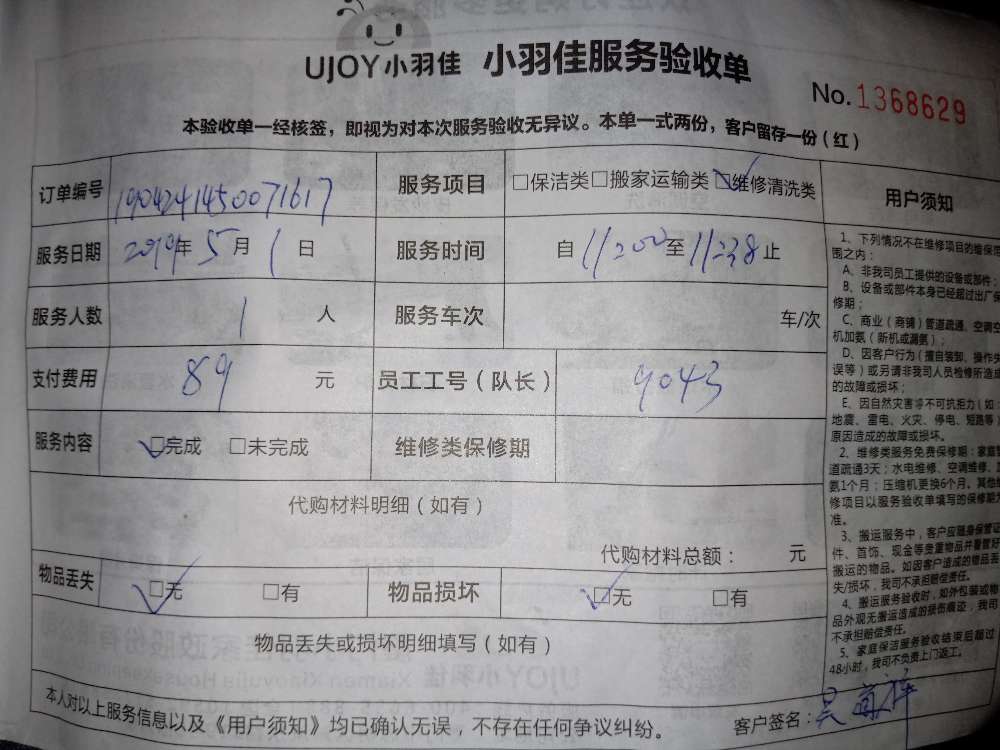 UJOY小羽佳 小羽佳服务验收单
No.1368629
本验收单一经核签，即视为对本次服务验收无异议。本单一式两份，客户留存一份（红）
订单编号 1904241450071617 服务项目 □保洁类□搬家运输类☑维修清洗类
服务日期 2019年5月1日 服务时间 自11:20至11:38止
服务人数 1人 服务车次 车/次
支付费用 89元 员工工号（队长） 9043
服务内容 ☑完成 □未完成 维修类保修期
代购材料明细（如有）
代购材料总额： 元
物品丢失 ☑无 □有 物品损坏 ☑无 □有
物品丢失或损坏明细填写（如有）
本人对以上服务信息以及《用户须知》均已确认无误，不存在任何争议纠纷。
客户签名：吴
用户须知
1、下列情况不在维修项目的维保范
围之内：
A、非我司员工提供的设备或部件；
B、设备或部件本身已经超过出厂保
修期；
C、商业（商铺）管道疏通、空调空
机加氨（新机或漏氨）；
D、因客户行为（擅自装卸、操作失
误等）或另请非我司人员检修所造成
的故障或损坏；
E、因自然灾害等不可抗拒力（如：
地震、雷电、火灾、停电、短路等
原因造成的故障或损坏。
2、维修类服务免费保修期：家庭管
道疏通3天；水电维修、空调维修、
氨1个月；压缩机更换6个月。其他维
修项目以服务验收单填写的保修期为
准。
3、搬运服务中，客户应随身保管证
件、首饰、现金等贵重物品并看管好
搬运的物品。如因客户造成的物品丢
失/损坏，我司不承担赔偿责任。
4、搬运服务验收时，如外包装或物
品外观无搬运造成的损伤痕迹，我司
不承担赔偿责任。
5、家庭保洁服务验收结束后超过
48小时，我司不负责上门返工。